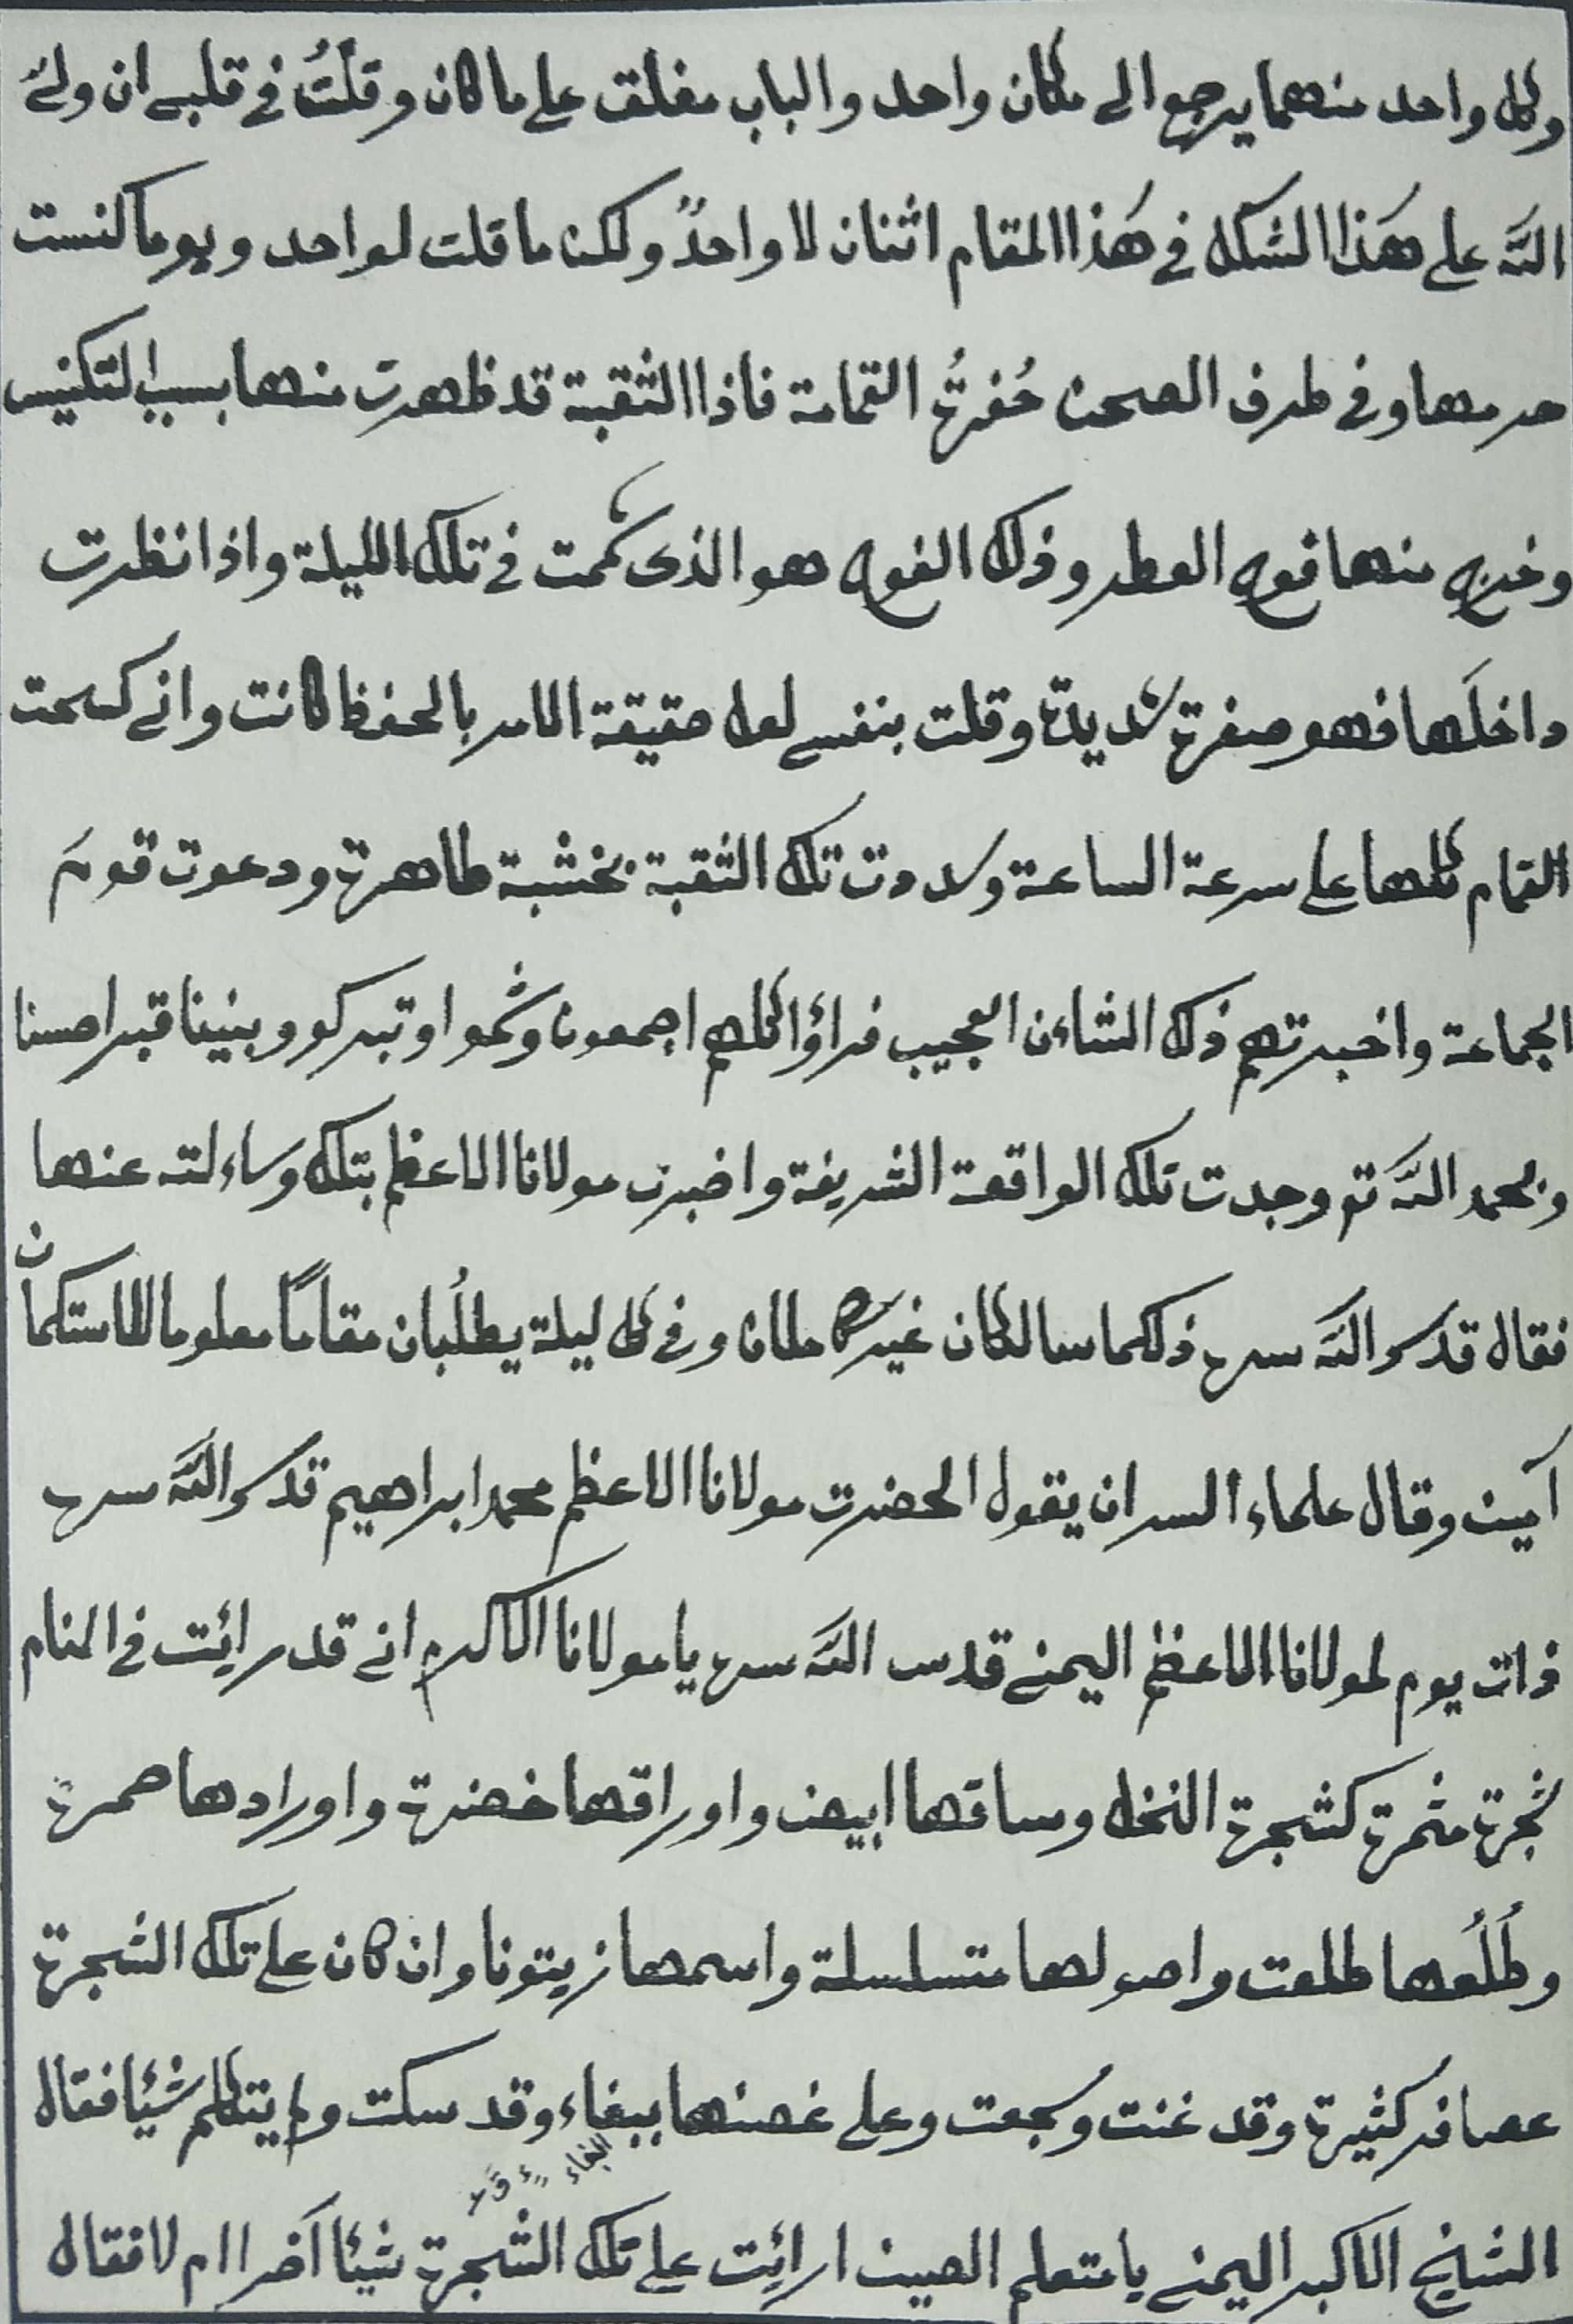 وكل واحد منهما يرجع الى مكان واحد والباب مغلق على ما كان وقلتُ في قلبي ان ولي
اللّه على هَذا الشكل في هَذا المقام اثنان لا واحدٌ ولكن ما قلت لواحد ويوما كنست
حرمها وفي طرف الصحن حُفرةُ القمامة فاذا الثقبة قد ظهرت منها بسبب التكنيس
وخرج منها فوح العطر وذلك الفوح هو الذى شممت في تلك الليلة واذا نظرت
داخلَها فهو صفرة شديدة وقلت بنفسي لعل حقيقة الامر بالحفظ كانت واني كسحت
القمام كلها على سرعة الساعة وسددت تلك الثقبة بخشبة طاهرة ودعوت قوم
الجماعة واخبرتهم ذلك الشاءن العجيب فراؤا كلهم اجمعون وشموا وتبركو وبنينا قبرا حسنا
وبحمد اللّه تع وجدت تلك الواقعة الشريفة واخبرت مولانا الاعظم بتلك وساءلته عنها
فقال قدس اللّه سره ذلكما سالكان غير كاملان وفي كل ليلة يطلُبان مقامًا معلوما للاستكمان
آمين وقال علماء السر ان يقول الحضرت مولانا الاعظم محمد ابراهيم قدس اللّه سره
ذات يوم لمولانا الاعظم اليمني قدس اللّه سره يا مولانا الاكرم اني قد رائت في المنام
شجرة مثمرة كشجرة النخل وساقها ابيض واوراقها خضرة واورادها حمرة
وطُلُعها طلعت واصولها متسلسلة واسمها زيتونا وان كان على تلك الشجرة
عصافر كثيرة وقد غنت وسجعت وعلى غصنها ببغاء وقد سكت ولم يتكلم شيئا فقال
الشيخ الاكبر اليمني يا متعلم الصين ارائت على تلك الشجرة شيئا آخر ام لا فقال